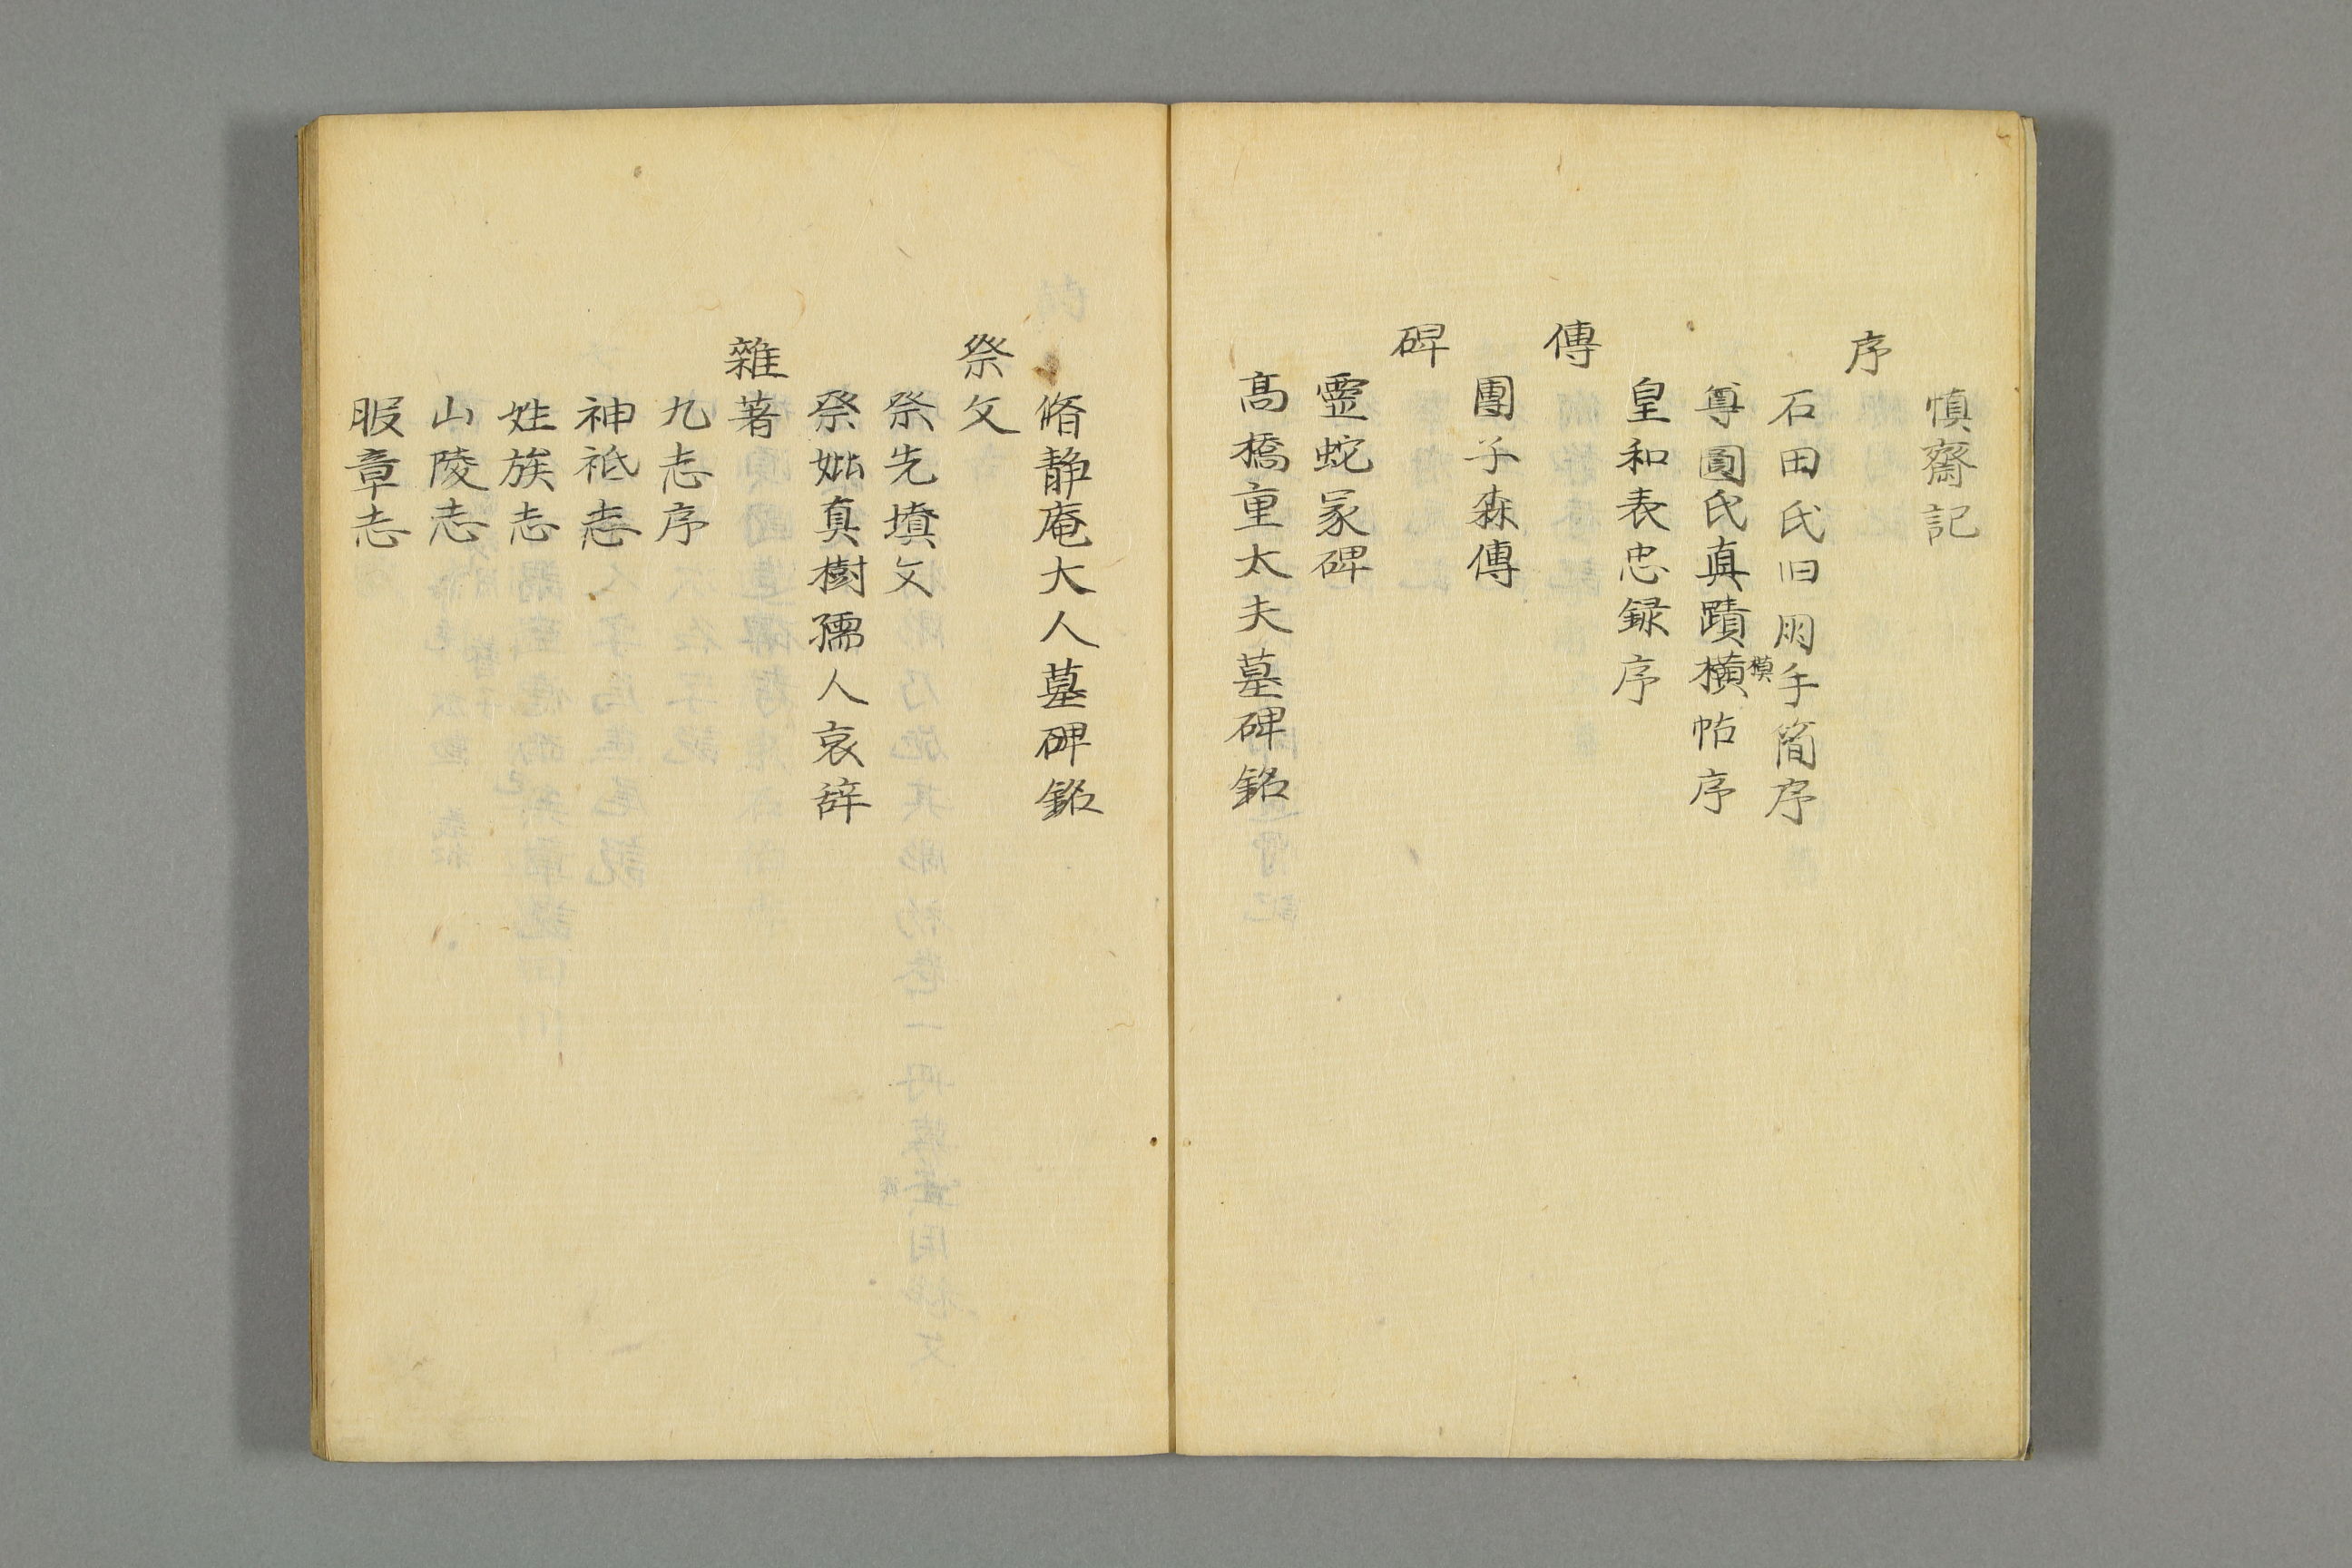 慎齋記
序
石田氏旧朋手簡序
尊圓氏真蹟横帖序
模
皇和表忠録序
傳
團子森傳
碑
靈蛇冢碑
高橋重太夫墓碑銘
脩静庵大人墓碑銘
祭文
祭先墳文
祭妣真樹孺人哀辞
雜著
九志序
神祇志
姓族志
山陵志
服章志